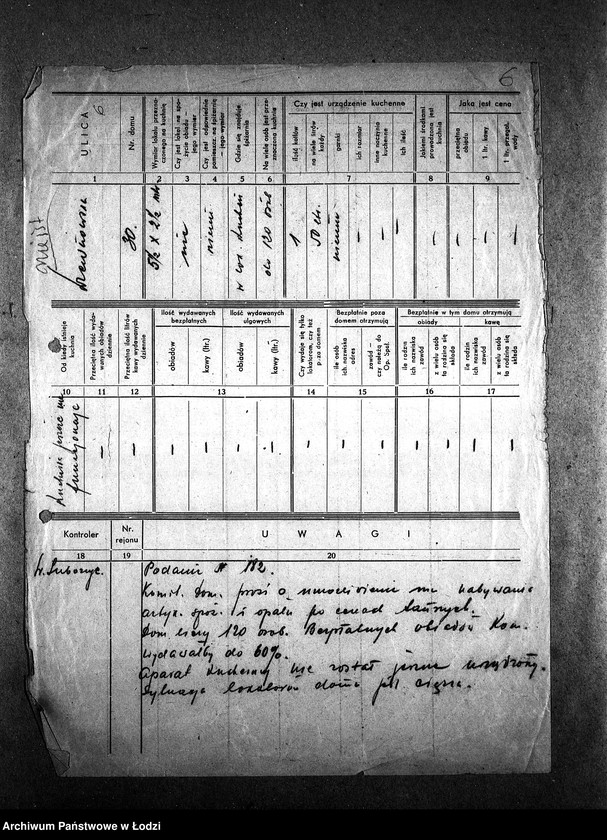 6
6
ULICA
Nr. domu
Wymiar lokalu przeznaczonego na kuchnię
Czy jest lokal na spożycie obiadu jego wymiar
Czy jest odpowiednie pomieszcz. na spiżarnię jego wymiar
Gdzie się znajduje spiżarnia
Na wiele osób jest przeznaczona kuchnia
Czy jest urządzenie kuchenne
ilość kotłów
na wiele litrów każdy
garnki
ich rozmiar
inne naczynia kuchenne
ich ilość
Jakiemi środkami prowadzona jest kuchnia
Jaka jest cena
przeciętna obiadu
1 ltr. kawy
1 ltr. przegot. wody
1 2 3 4 5 6 7 8 9
30.
5½ X 2½ mtr
nie
niema
do 120 osób
1
50 ltr.
niema
— — — — — — —
Od kiedy istnieje kuchnia
Przeciętna ilość wydawanych obiadów dziennie
Przeciętna ilość litrów kawy wydawanych dziennie
Ilość wydawanych bezpłatnych
obiadów
kawy (ltr.)
Ilość wydawanych ulgowych
obiadów
kawy (ltr.)
Czy wydaje się tylko lokatorom, czy też p-za domem
Bezpłatnie poza domem otrzymują
ile osób, ich nazwiska adres
zawód — czy należą do Op. Społ.
Bezpłatnie w tym domu otrzymują
obiady
kawę
ile rodzin ich nazwiska zawód
z wielu osób ta rodzina się składa
ile rodzin ich nazwiska zawód
z wielu osób ta rodzina się składa
10 11 12 13 14 15 16 17
Kuchnia jeszcze nie funkcjonuje
— — — — — — — — — — — — —
Kontroler
Nr. rejonu
U W A G I
18 19 20
Podanie № 182.
Komit. Dom. prosi o umożliwienie mu nabywania
artyk. spoż. i opału po cenach tańszych.
Dom liczy 120 osób. Bezpłatnych obiadów Kom.
wydawałby do 60%.
Aparat kuchenny nie został jeszcze urządzony.
Sytuacja lokatorów domu
Archiwum Państwowe w Łodzi